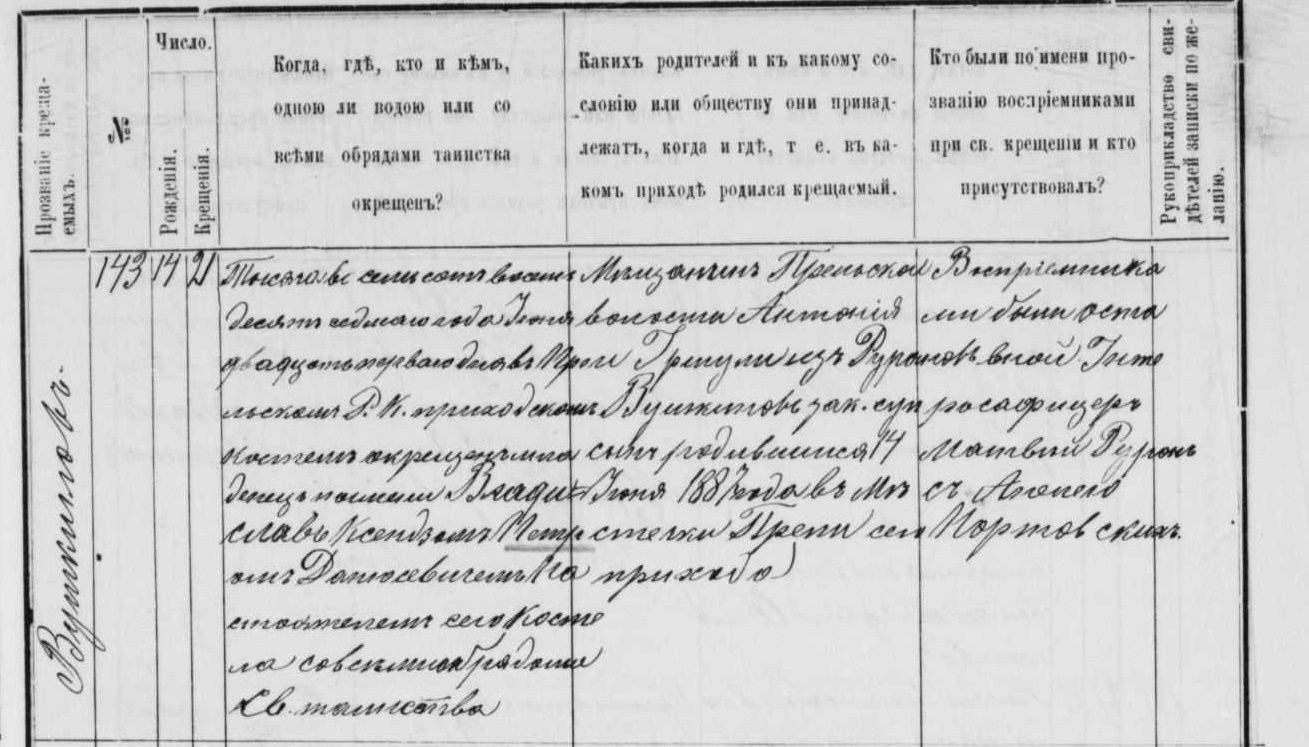 Прозваніе креща-
емыхъ.
№
Число.
Рожденія.
Крещенія.
Когда, гдѣ, кто и кѣмъ,
одною ли водою или со
всѣми обрядами таинства
окрещенъ?
Какихъ родителей и къ какому со-
словію или обществу они принад-
лежатъ, когда и гдѣ, т е. въ ка-
комъ приходѣ родился крещаемый.
Кто были по имени про-
званію воспріемниками
при св. крещеніи и кто
присутствовалъ?
Рукоприкладство сви-
дѣтелей записки по же-
ланію.
143
14
21
Тысяча восемь
десятъ седмаго года Іюня
двадцать перваго дня въ Пре
льскомъ Р. К. приходскомъ
костелѣ окрещенъ мла
денецъ по имени Влади
славъ Ксендзомъ Петр
омъ На
стоятелемъ сего Косте
ла со всѣми обрядами
Св. таинства
Мѣщанинъ Прельской
волости Антонія
и изъ
зак. суп
сынъ родившійся 14
Іюня 1887 года въ Мѣ
стечки Прели сего
прихода
Воспріемника
ми были
вной Унте
росафицеръ
Матвѣй
съ